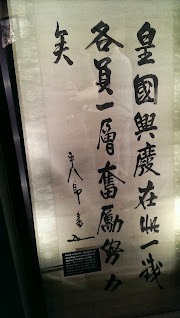 皇國興廢在此一戰
各員一層奮勵努力
矣
平八郎書